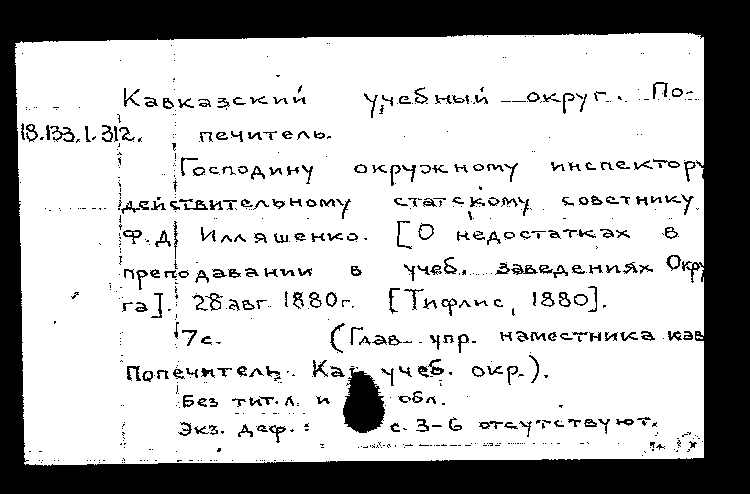 Кавказский учебный округ. По-
18.133.1.312. печитель.
Господину окружному инспектору
действительному статскому советнику
Ф.Д. Илляшенко. [О недостатках в
преподавании в учеб. заведениях Окру
га]. 28 авг. 1880г. [Тифлис, 1880].
7с. (Глав. упр. наместника кав
Попечитель Кав учеб. окр.).
Без тит. л. и обл.
Экз. деф.: с. 3-6 отсутствуют.